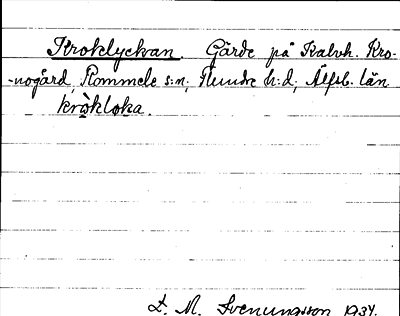 Kroklyckan. Gärde på Kalvh. Kro-
-nogård, Rommele s:n, Flundre h:d, Älfsb. län
kròkloka.
L. M. Svenungsson 1934.